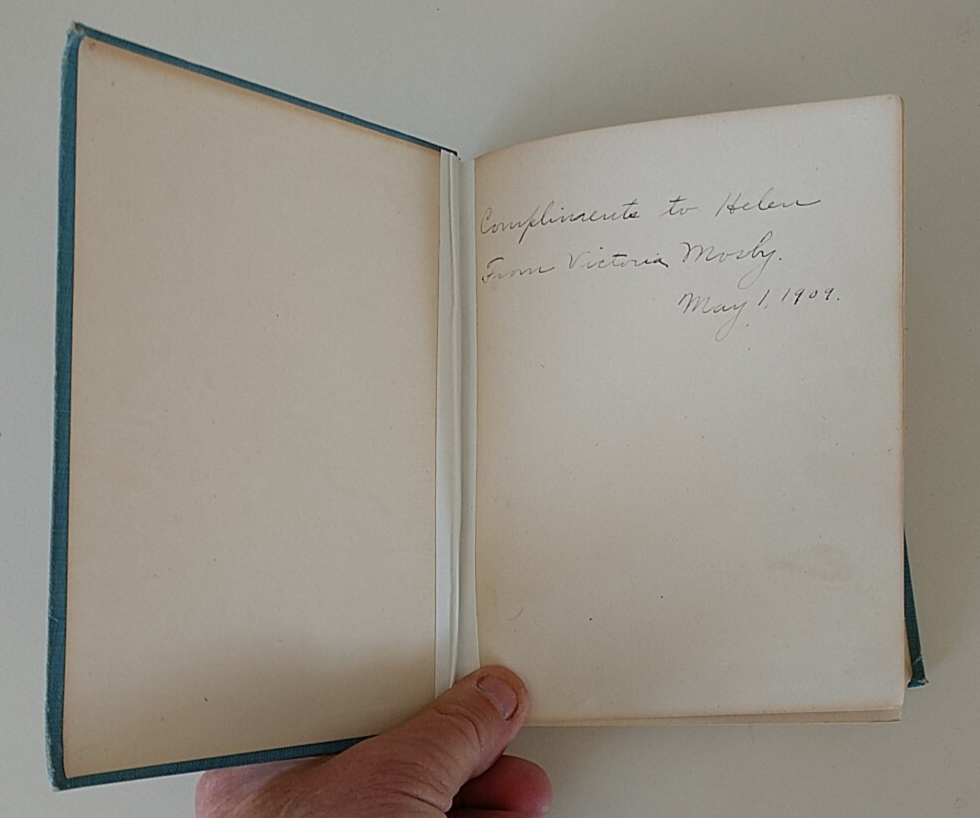 Compliments to Helen
From Victoria Mosby.
May 1, 1909.